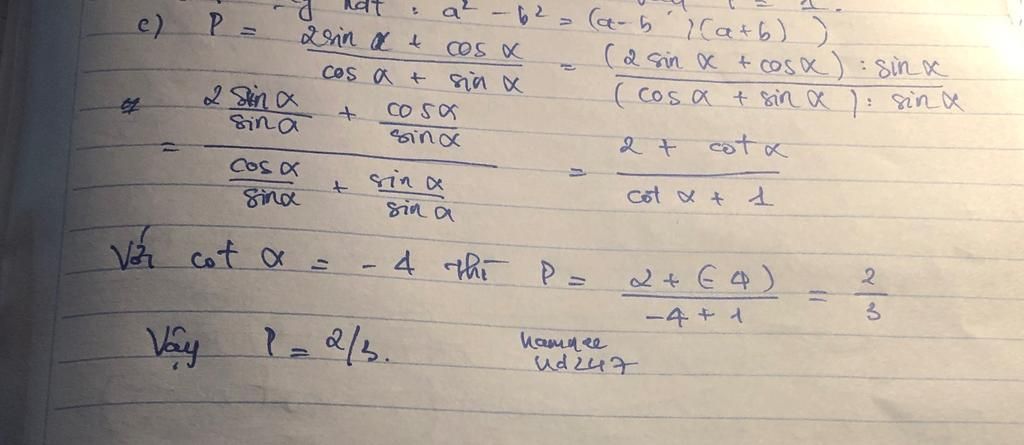 hđt : a² - b² = (a-b)(a+b) )
c) P = (2sin α + cos α)/(cos α + sin α) = ((2 sin α + cos α) : sin α)/((cos α + sin α) : sin α)
= (2 sin α/sin α + cos α/sin α)/(cos α/sin α + sin α/sin α) = (2 + cot α)/(cot α + 1)
Với cot α = -4 thì P = (2 + (-4))/(-4 + 1) = 2/3
Vậy P = 2/3.